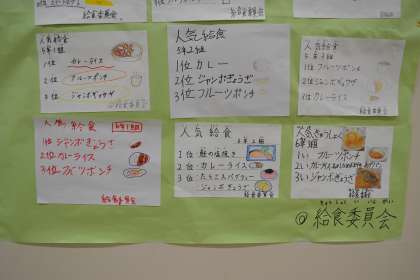 給食委員会
人気給食
5年1組
1位 カレーライス
2位 フルーツポンチ
3位 ジャンボギョウザ
給食委員会
人気給食
5年2組
1位 カレー
2位 ジャンボぎょうざ
3位 フルーツポンチ
人気給食
5年3組
1位 フルーツポンチ
2位 ジャンボギョウザ
3位 カレーライス
給食委員会
人気給食
1位 ジャンボぎょうざ
2位 カレーライス
3位 フルーツポンチ
給食委員会
人気給食
6年2組
1位・鮭の塩焼き
2位・カレーライス
3位・たらこスパゲティー
ジャンボぎょうざ
給食委員会
人気きゅうしょく
6年3組
1い フルーツポンチ
2い カレーライス
3い ジャンボぎょうざ
@給食委員会